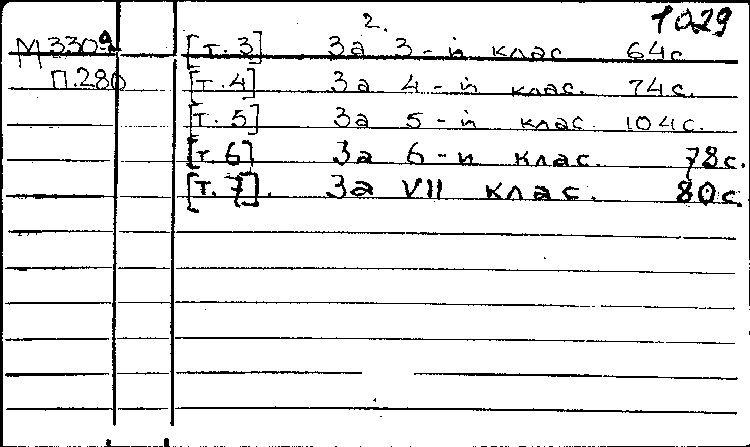 2. 1029
М 3309 [т. 3] За 3-й клас 64 с
П.280 [т. 4] За 4-й клас. 74 с.
[т. 5] За 5-й клас. 104 с.
[т. 6] За 6-й клас. 78 с.
[т. 7]. За VII клас. 80 с.